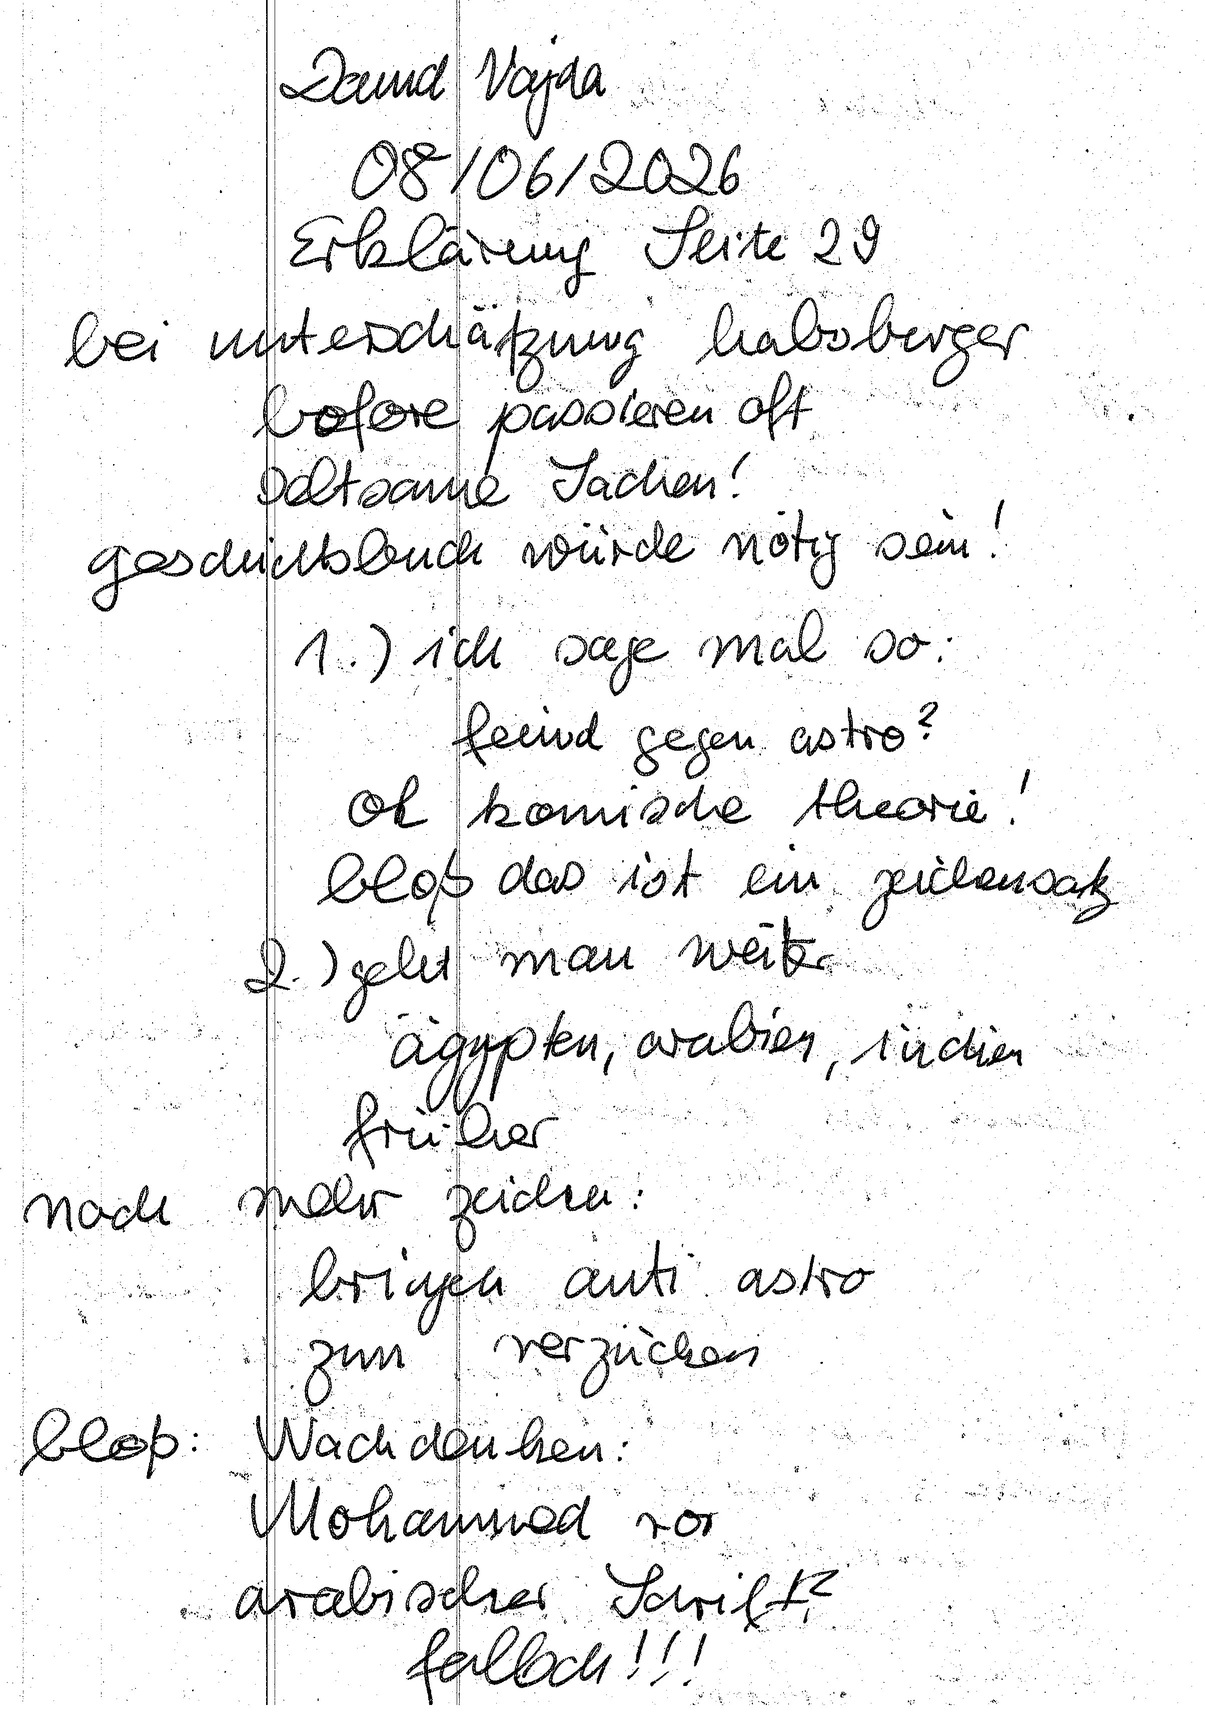 David Vajda
08/06/2026
Erklärung Seite 29
bei unterschätzung habsberger
before passieren oft
seltsame Sachen!
geschichtsbuch würde nötig sein!
1.) ich sage mal so:
feind gegen astro?
ok komische theorie!
bloß das ist ein zeichensatz
2.) geht man weiter
ägypten, arabien, indien
früher
noch mehr zeichen:
bringen anti astro
zum verzücken
bloß: Nachdenken:
Mohammed vor
arabischer Schrift?
falsch!!!